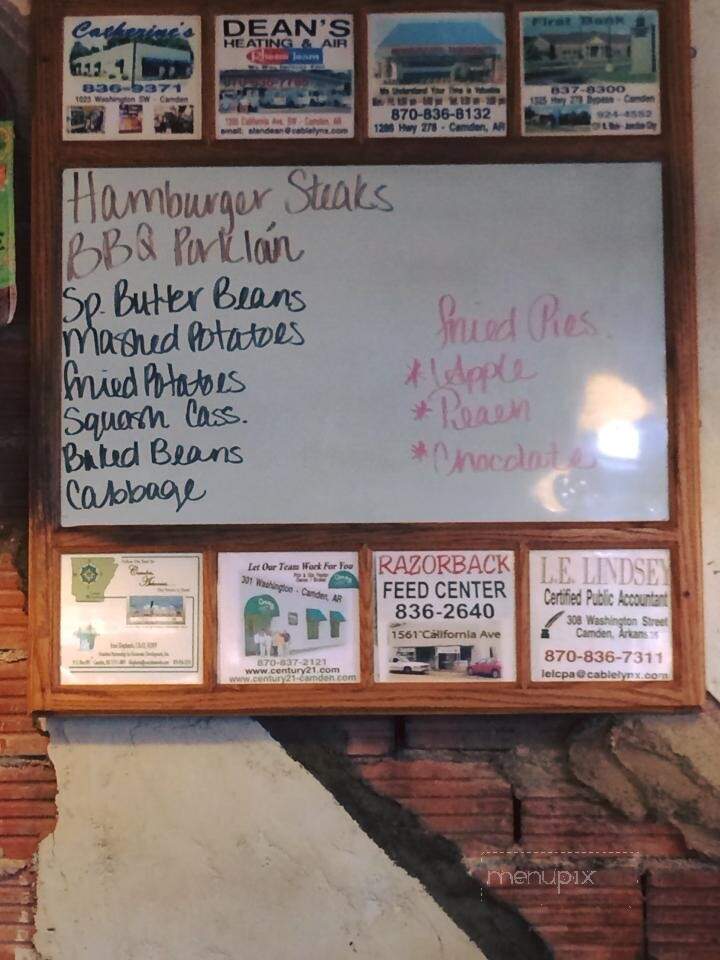 Catherine's
836-9371
1023 Washington SW - Camden
DEAN'S
HEATING & AIR
Rheem Team
1205 California Ave. SW - Camden, AR
email: slendean@cablelynx.com
We Understand Your Time is Valuable
870-836-8132
1206 Hwy 278 - Camden, AR
First Bank
837-8300
1325 Hwy 278 Bypass - Camden
924-4552
Hamburger Steaks
BBQ Pork loin
Sp. Butter Beans
Mashed Potatoes
Fried Potatoes
Squash Cass.
Baked Beans
Cabbage
Fried Pies
* Apple
* Peach
* Chocolate
Camden,
Arkansas
Let Our Team Work For You
301 Washington - Camden, AR
870-837-2121
www.century21.com
www.century21-camden.com
RAZORBACK
FEED CENTER
836-2640
1561 California Ave
L.E. LINDSEY
Certified Public Accountant
308 Washington Street
Camden, Arkansas
870-836-7311
lelcpa@cablelynx.com
menupix